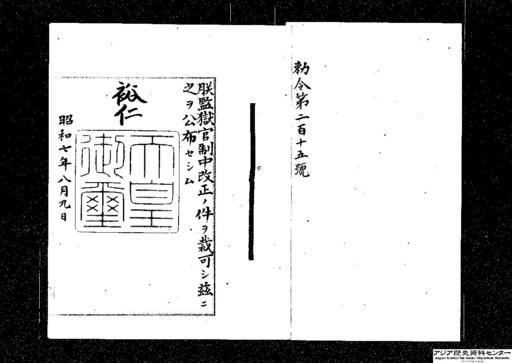 勅令第二百十五號
朕監獄官制中改正ノ件ヲ裁可シ茲ニ
之ヲ公布セシム
裕仁
天皇
御璽
昭和七年八月九日
アジア歴史資料センター
Japan Center for Asian Historical Records